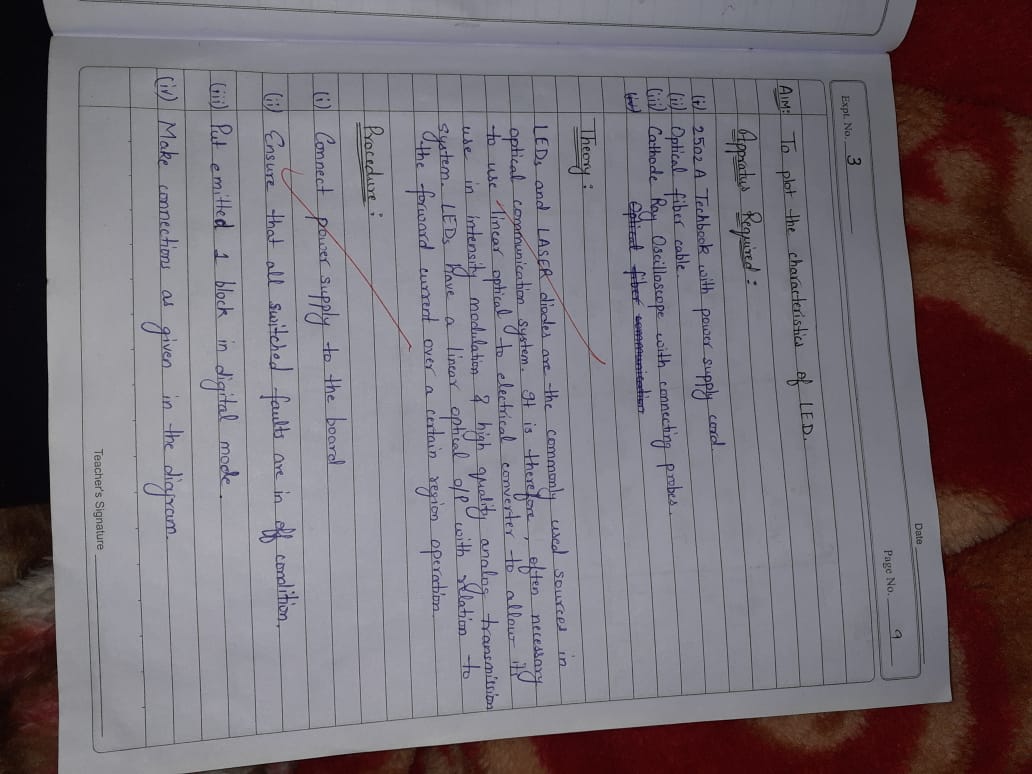 Date
Page No. 9
Expt. No. 3
AIM: To plot the characteristics of LED.
Appratus Required :
(i) 2502 A Techbook with power supply cord.
(ii) Optical fiber cable.
(iii) Cathode Ray Oscilloscope with connecting probes.
(iv) Optical fiber communication
Theory :
LEDs and LASER diodes are the commonly used sources in
optical communication system. It is therefore, often necessary
to use linear optical to electrical converter to allow its
use in intensity modulation & high quality analog transmission
system. LEDs have a linear optical o/p with relation to
the forward current over a certain region operation.
Procedure :
(i) Connect power supply to the board
(ii) Ensure that all switched faults are in off condition.
(iii) Put emitted 1 block in digital mode.
(iv) Make connections as given in the diagram.
Teacher's Signature